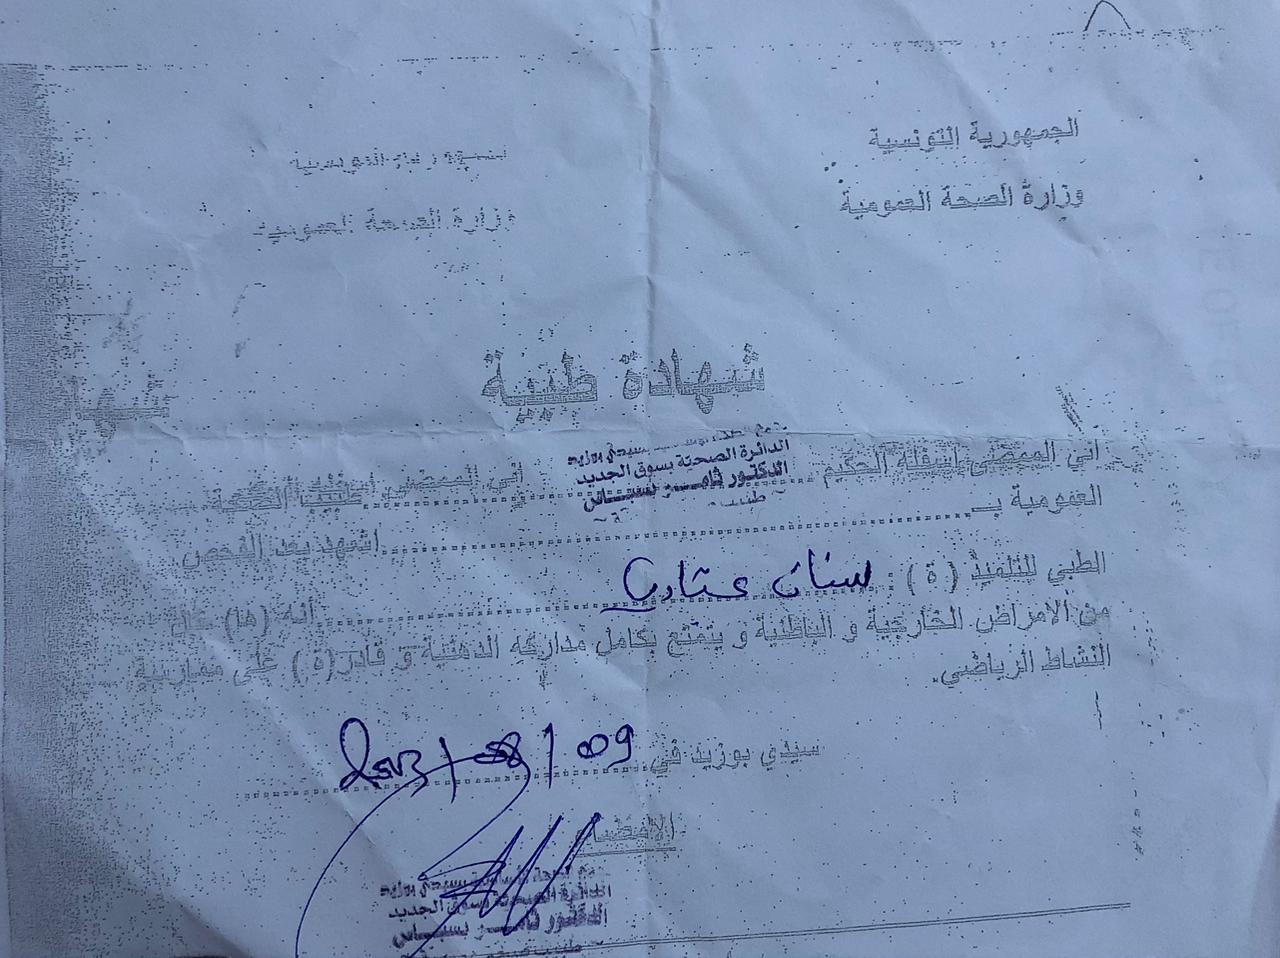 الجمهورية التونسية
وزارة الصحة العمومية
وزارة الصحة العمومية
شهادة طبية
سيدي بوزيد
الدائرة الصحية بسوق الجديد
الدكتور ثامر بسباس
اني الممضي اسفله الحكيم
اني الممضي اسفله
العمومية بـ
اشهد بعد الفحص
الطبي للتلميذ ( ة ) : سنان
أنه (ها) خال
من الامراض الخارجية و الباطنية و يتمتع بكامل مداركه الذهنية و قادر(ة) على ممارسة
النشاط الرياضي.
سيدي بوزيد في 09 / 08 / 2023
الإمضاء
بسيدي بوزيد
الدائرة الصحية بسوق الجديد
الدكتور ثامر بسباس